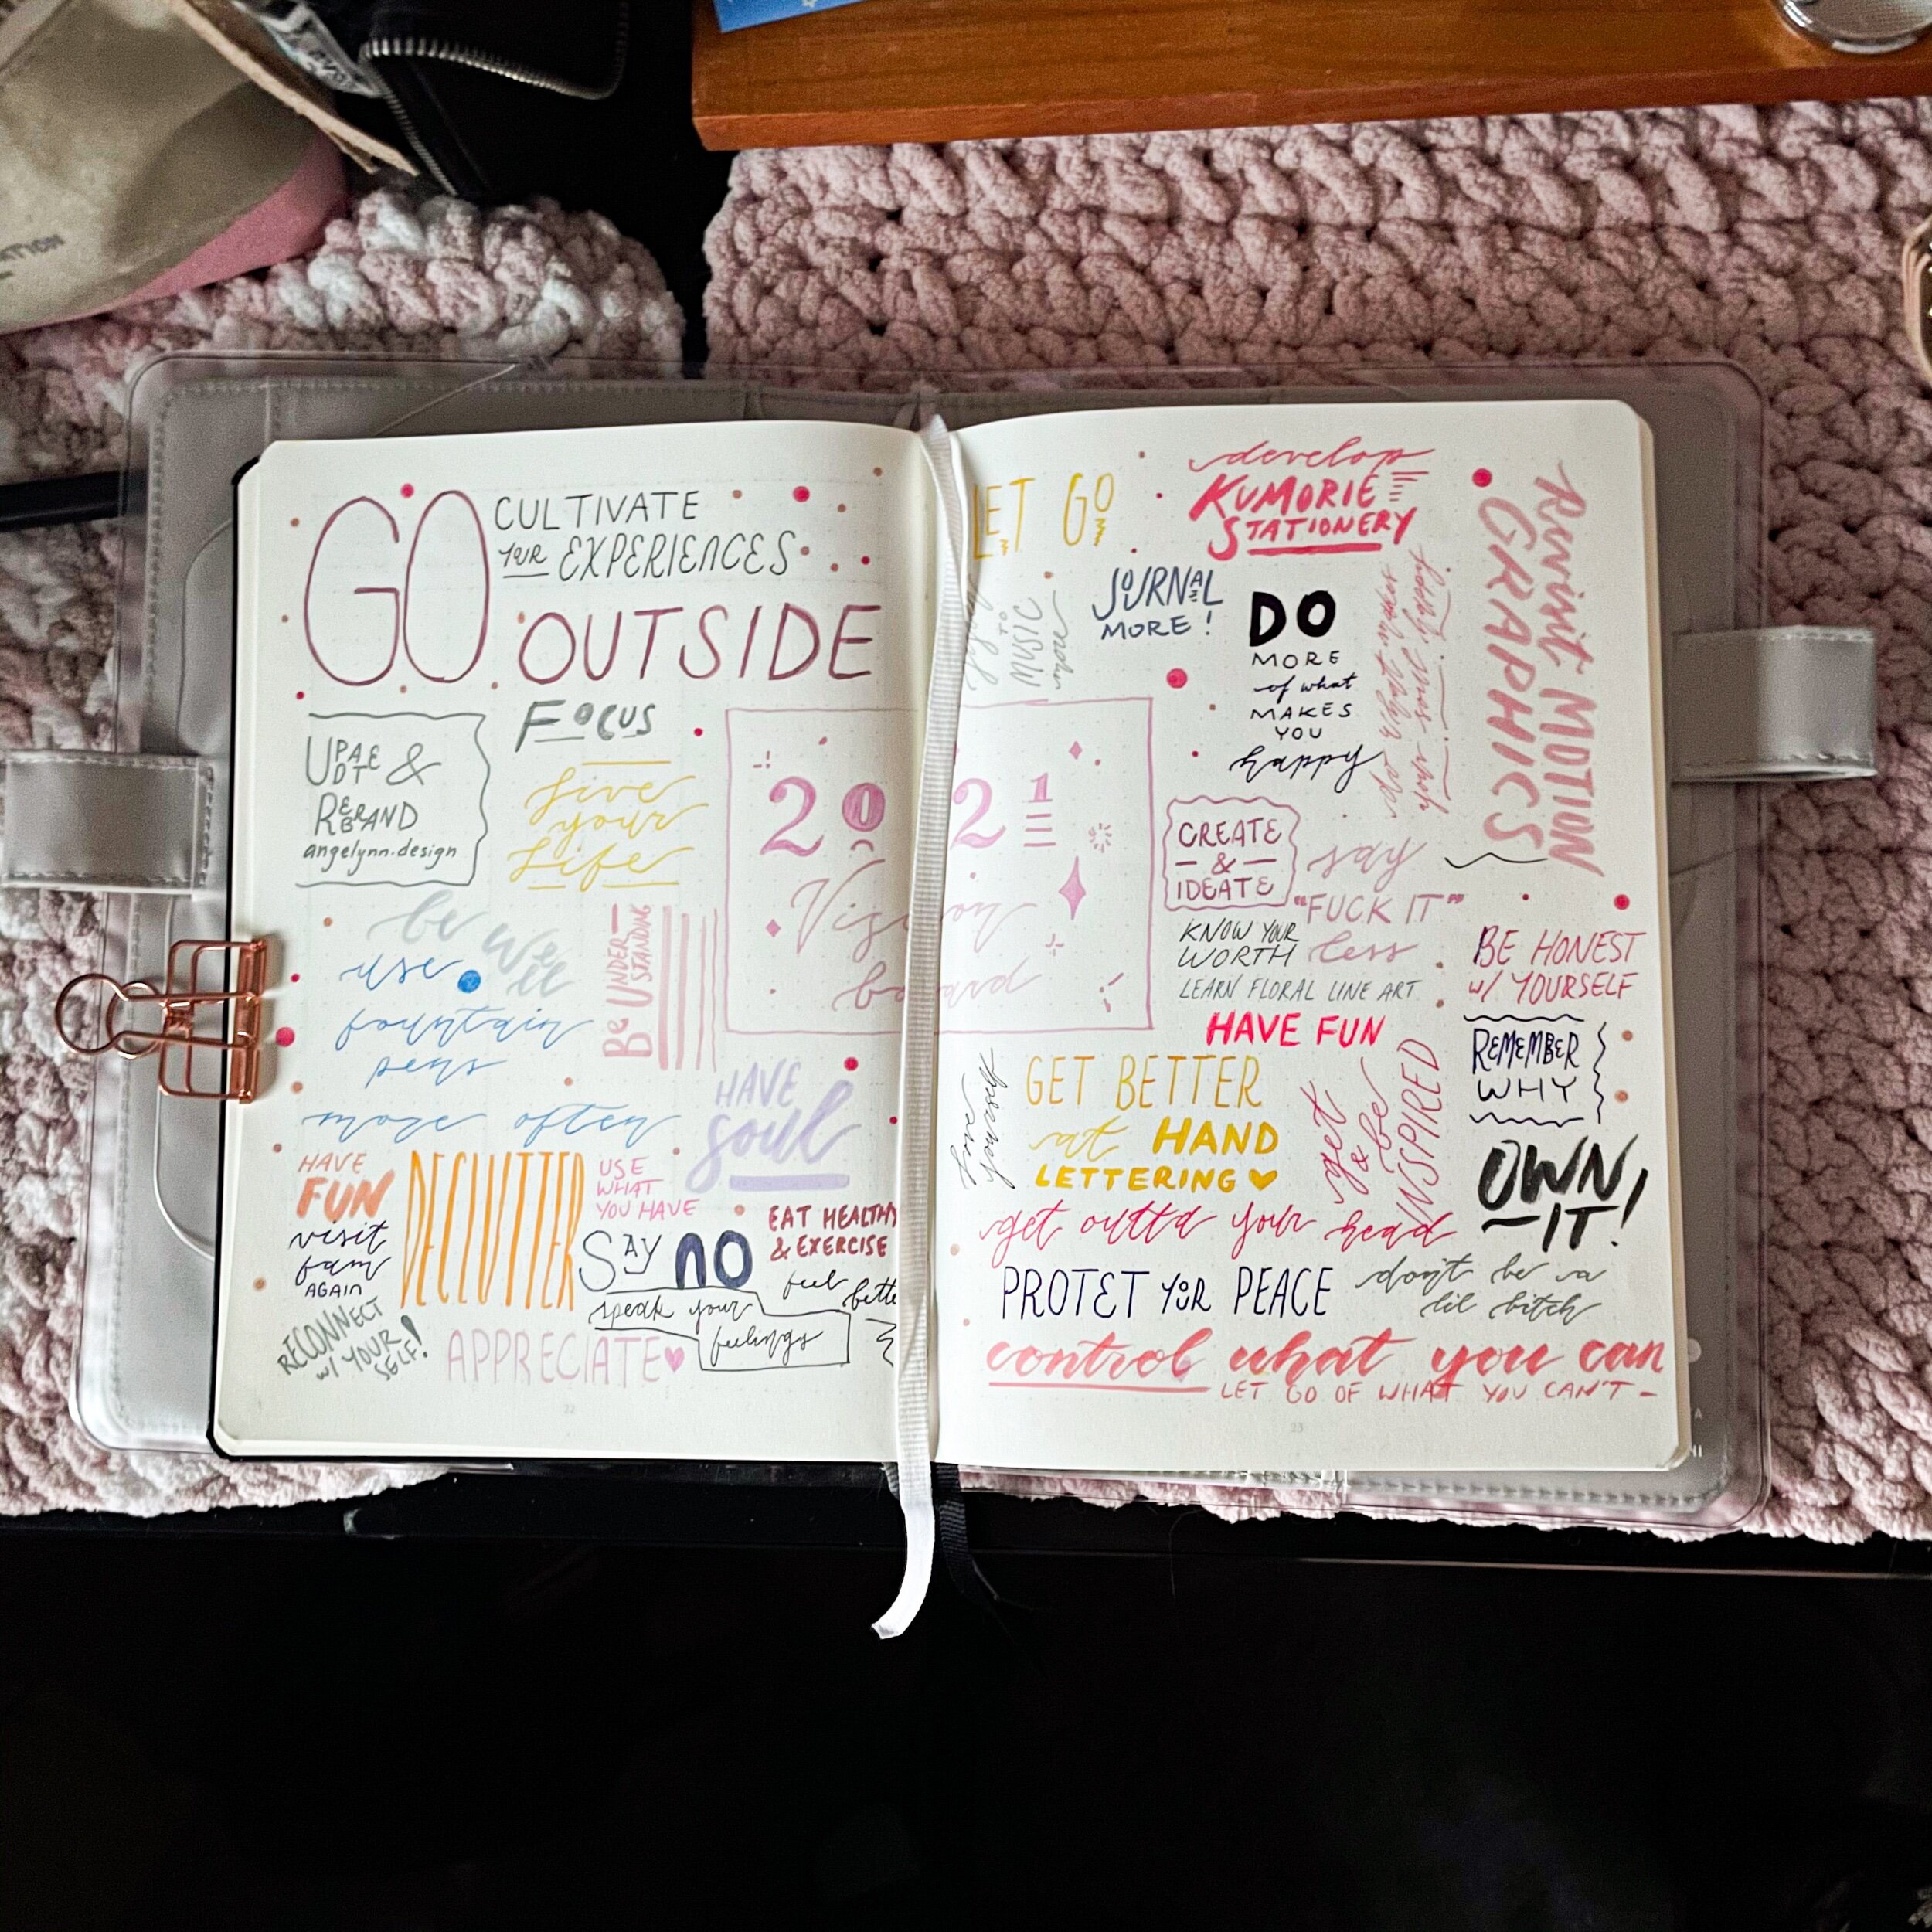 GO
CULTIVATE
YOUR EXPERIENCES
OUTSIDE
FOCUS
UPDATE &
REBRAND
angelynn.design
live
your
life
be well
use
fountain
pens
more often
BE UNDER-
STANDING
HAVE
soul
HAVE
FUN
visit
fam
AGAIN
DECLUTTER
USE
WHAT
YOU HAVE
SAY NO
EAT HEALTHY
& EXERCISE
feel
bette
speak your
feelings
RECONNECT
w/ YOUR
SELF!
APPRECIATE
22
2021
Vision
board
LET GO
develop
KUMORIE
STATIONERY
Revisit MOTION
GRAPHICS
TO
MUSIC
more
JOURNAL
MORE!
DO
MORE
of what
MAKES
YOU
happy
do what makes
your soul happy
CREATE
- & -
IDEATE
say
"FUCK IT"
less
KNOW YOUR
WORTH
LEARN FLORAL LINE ART
BE HONEST
w/ YOURSELF
HAVE FUN
REMEMBER
WHY
love
yourself
GET BETTER
at HAND
LETTERING
get
& be
INSPIRED
OWN
IT!
get outta your head
PROTET YOUR PEACE
don't be a
lil bitch
control what you can
LET GO OF WHAT YOU CAN'T -
23